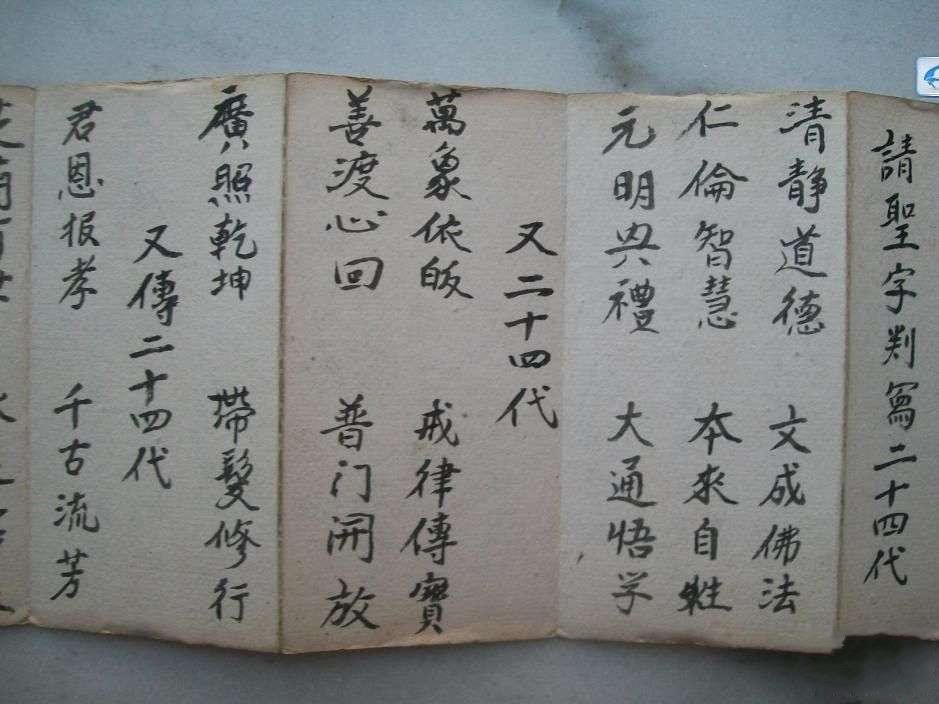 請聖字判寫二十四代
清静道德 文成佛法
仁倫智慧 本來自性
元明典禮 大通悟学
又二十四代
萬象依皈 戒律傳寶
善渡心回 普门開放
廣照乾坤 帶髮修行
又傳二十四代
君恩报孝 千古流芳